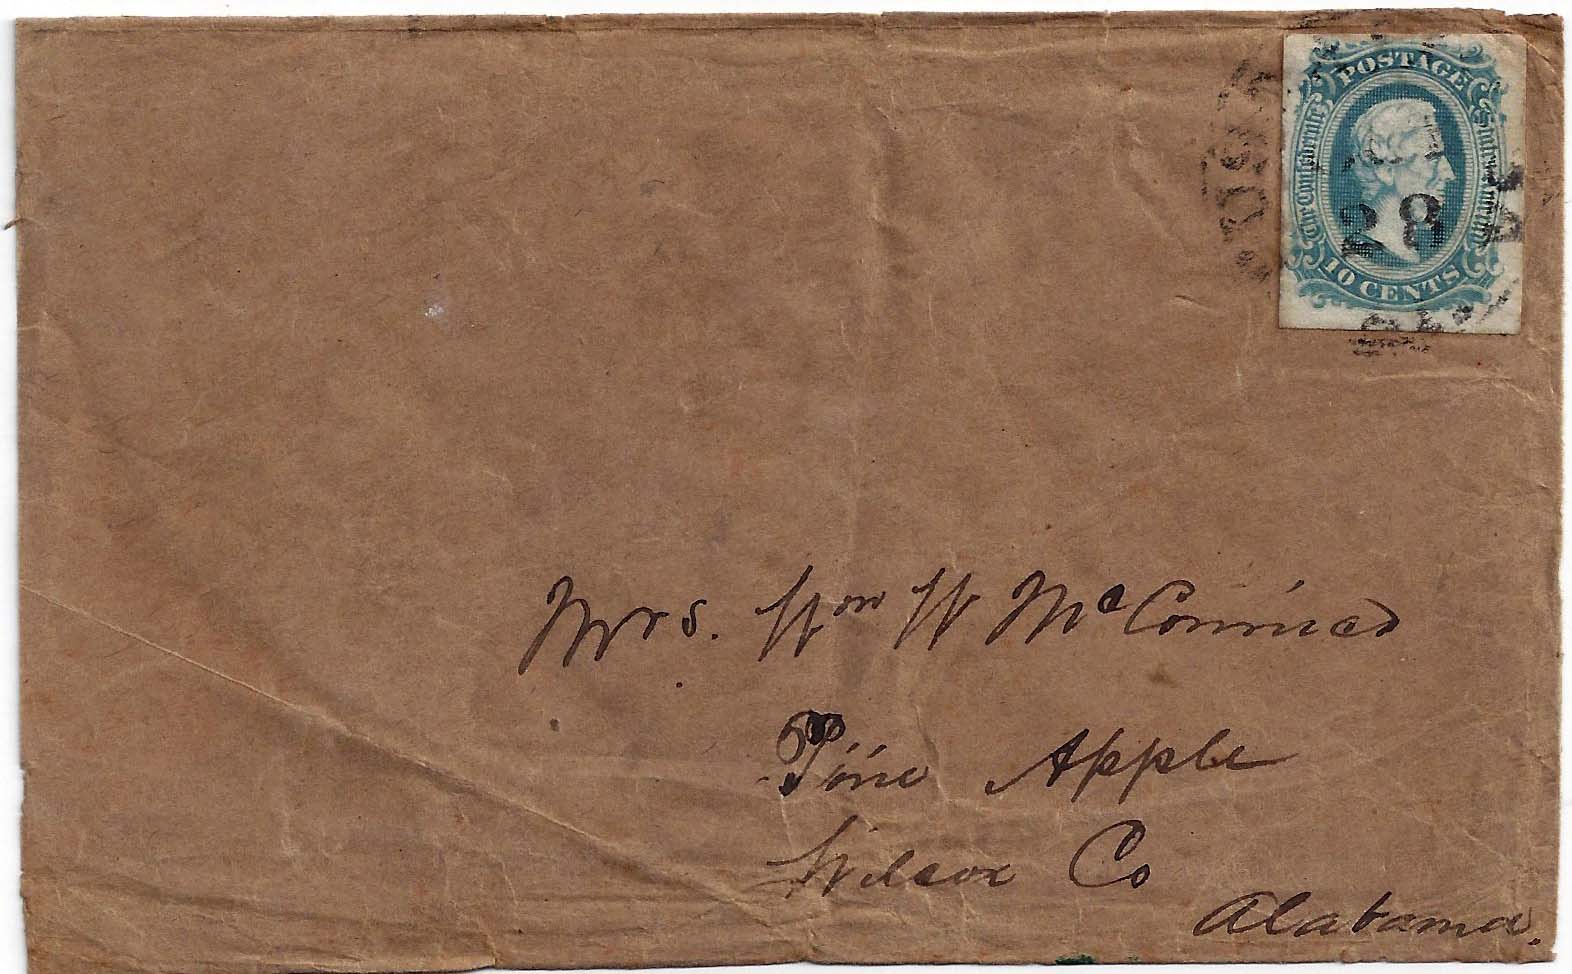 POSTAGE
The Confederate States of America
10 CENTS
28
Mrs. Wm W McConnico
Pine Apple
Wilcox Co
Alabama.